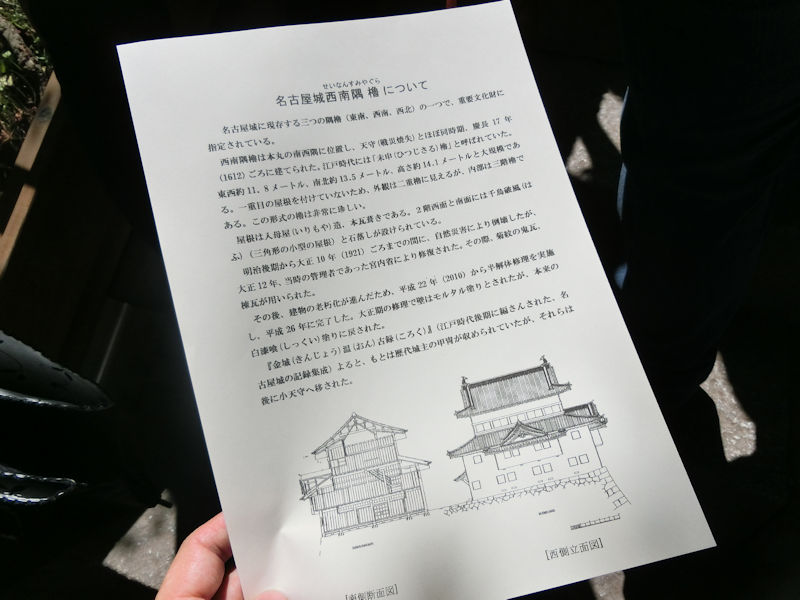 せいなんすみやぐら
名古屋城西南隅櫓について
名古屋城に現存する三つの隅櫓（東南、西南、西北）の一つで、重要文化財に
指定されている。
西南隅櫓は本丸の南西隅に位置し、天守（戦災焼失）とほぼ同時期、慶長17年
（1612）ごろに建てられた。江戸時代には「未申（ひつじさる）櫓」と呼ばれていた。
東西約11.8メートル、南北約13.5メートル、高さ約14.1メートルと大規模であ
る。一重目の屋根を付けていないため、外観は二重櫓に見えるが、内部は三階櫓で
ある。この形式の櫓は非常に珍しい。
屋根は入母屋（いりもや）造、本瓦葺きである。2階西面と南面には千鳥破風（は
ふ）（三角形の小型の屋根）と石落しが設けられている。
明治後期から大正10年（1921）ごろまでの間に、自然災害により倒壊したが、
大正12年、当時の管理者であった宮内省により修復された。その際、菊紋の鬼瓦、
棟瓦が用いられた。
その後、建物の老朽化が進んだため、平成22年（2010）から半解体修理を実施
し、平成26年に完了した。大正期の修理で壁はモルタル塗りとされたが、本来の
白漆喰（しっくい）塗りに戻された。
『金城（きんじょう）温（おん）古録（ころく）』（江戸時代後期に編さんされた、名
古屋城の記録集成）よると、もとは歴代城主の甲冑が収められていたが、それらは
後に小天守へ移された。
[南側断面図]
[西側立面図]